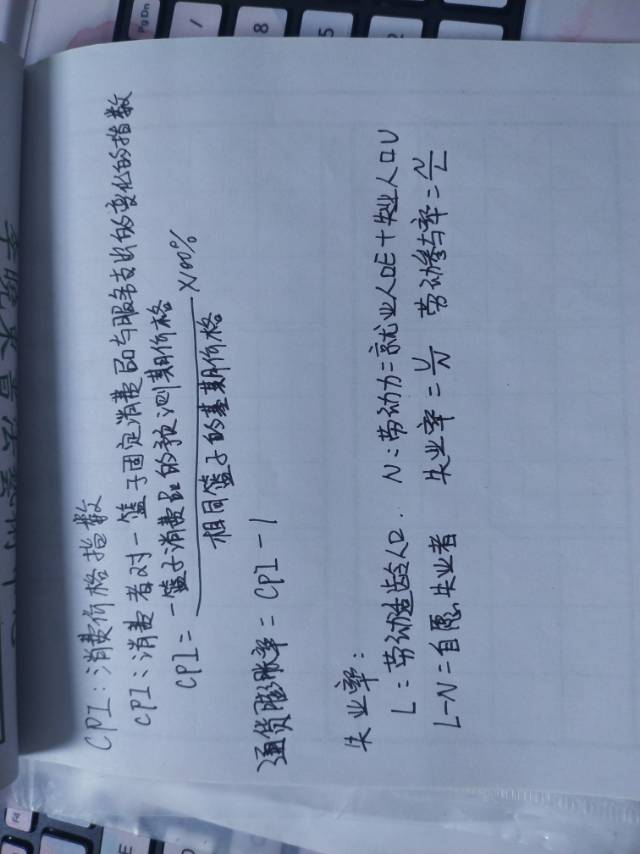 CPI：消费价格指数
CPI：消费者对一篮子固定消费品与服务支出的变化的指数
CPI = 一篮子消费品的预测期价格 / 相同篮子的基期价格 ×100%
通货膨胀率 = CPI - 1
失业率：
L：劳动适龄人口. N：劳动力：就业人口E + 失业人口U
L-N = 自愿失业者 失业率 = U/N 劳动参与率 = N/L
PgDn
/
8
5
2
E